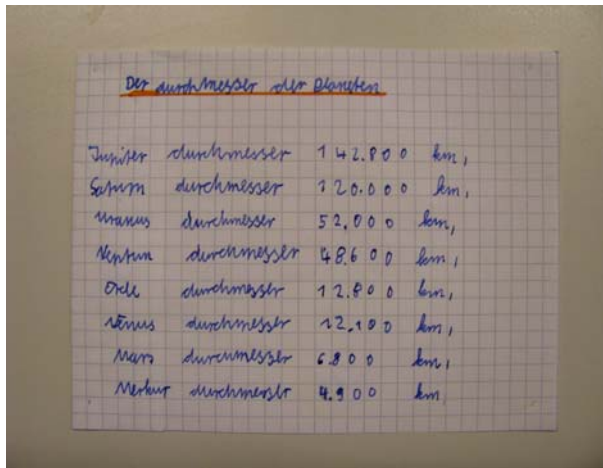 Der durchmesser der Planeten
Jupiter durchmesser 142.800 km,
Saturn durchmesser 120.000 km,
Uranus durchmesser 52.000 km,
Neptun durchmesser 48.600 km,
Erde durchmesser 12.800 km,
Venus durchmesser 12.100 km,
Mars durchmesser 6.800 km,
Merkur durchmesser 4.900 km